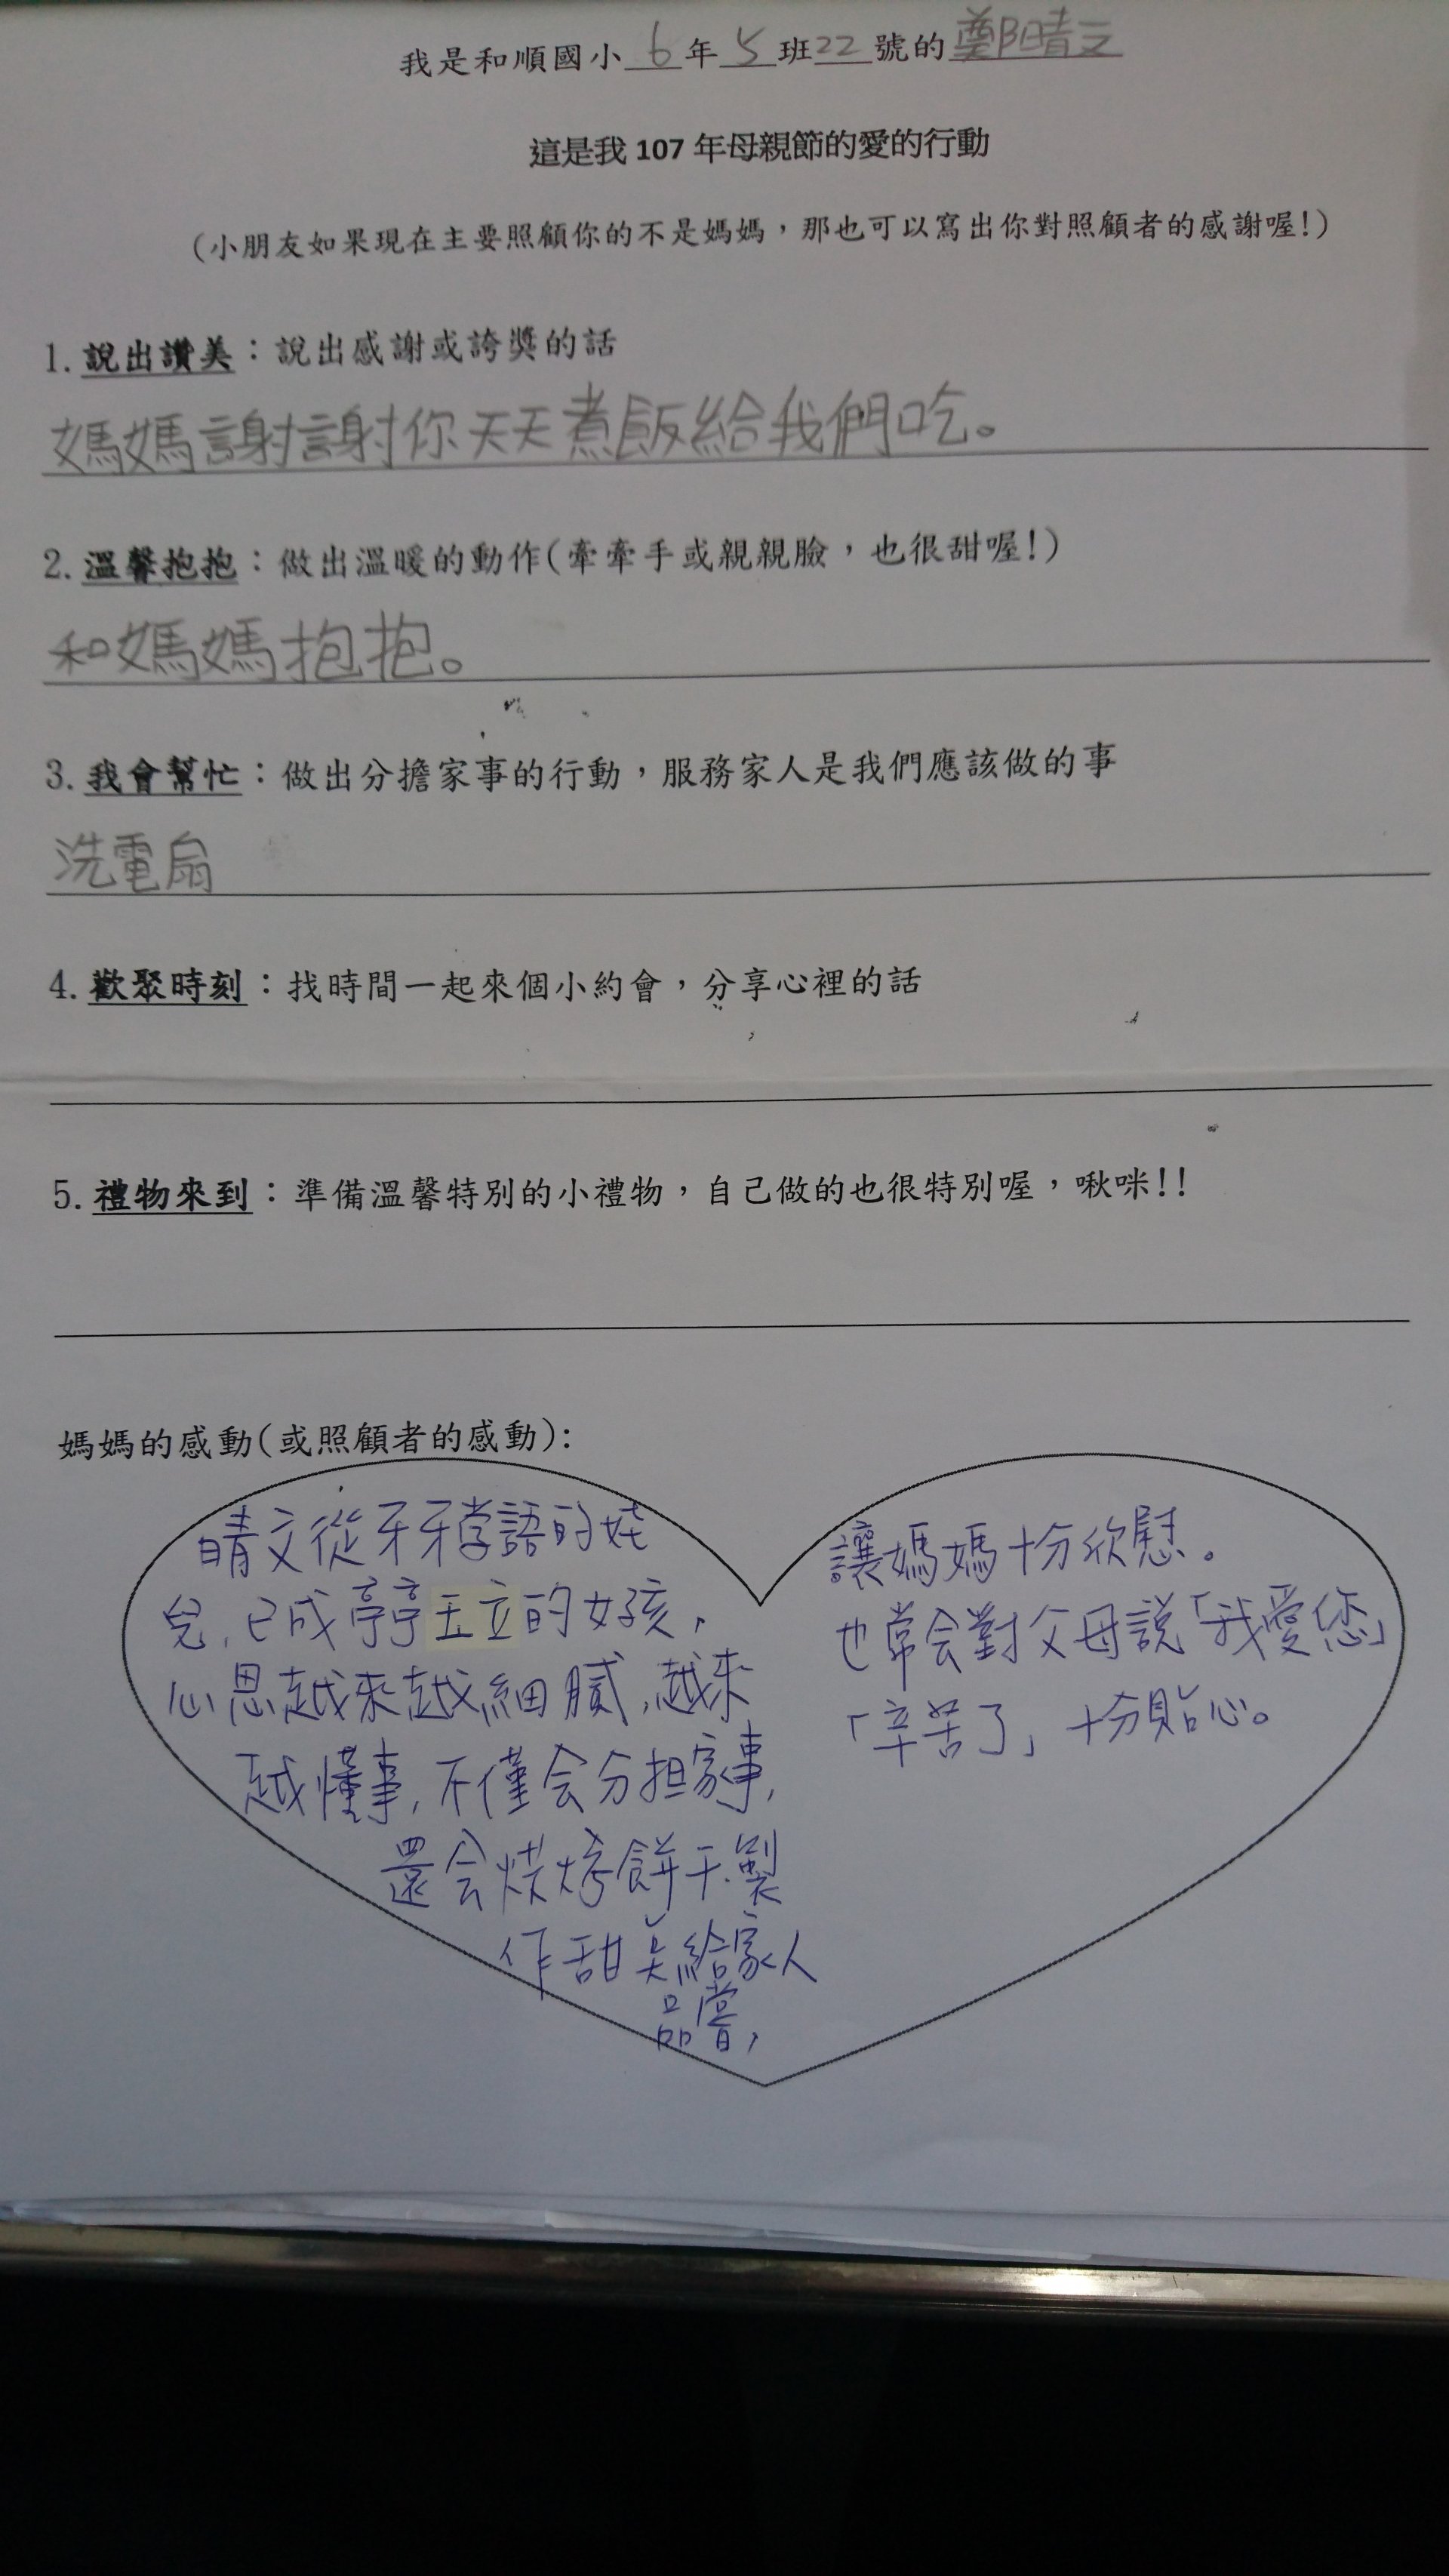 我是和順國小 6 年 5 班 22 號的 鄭晴文
這是我 107 年母親節的愛的行動
(小朋友如果現在主要照顧你的不是媽媽，那也可以寫出你對照顧者的感謝喔!)
1. 說出讚美：說出感謝或誇獎的話
媽媽謝謝你天天煮飯給我們吃。
2. 溫馨抱抱：做出溫暖的動作(牽牽手或親親臉，也很甜喔!)
和媽媽抱抱。
3. 我會幫忙：做出分擔家事的行動，服務家人是我們應該做的事
洗電扇
4. 歡聚時刻：找時間一起來個小約會，分享心裡的話
5. 禮物來到：準備溫馨特別的小禮物，自己做的也很特別喔，啾咪!!
媽媽的感動(或照顧者的感動):
晴文從牙牙学語的娃
兒,已成亭亭玉立的女孩,
心思越來越細膩,越來
越懂事,不僅会分担家事,
還会烘烤餅干、製
作甜点給家人
品嘗,
讓媽媽十分欣慰。
也常会對父母說「我愛您」
「辛苦了」十分貼心。